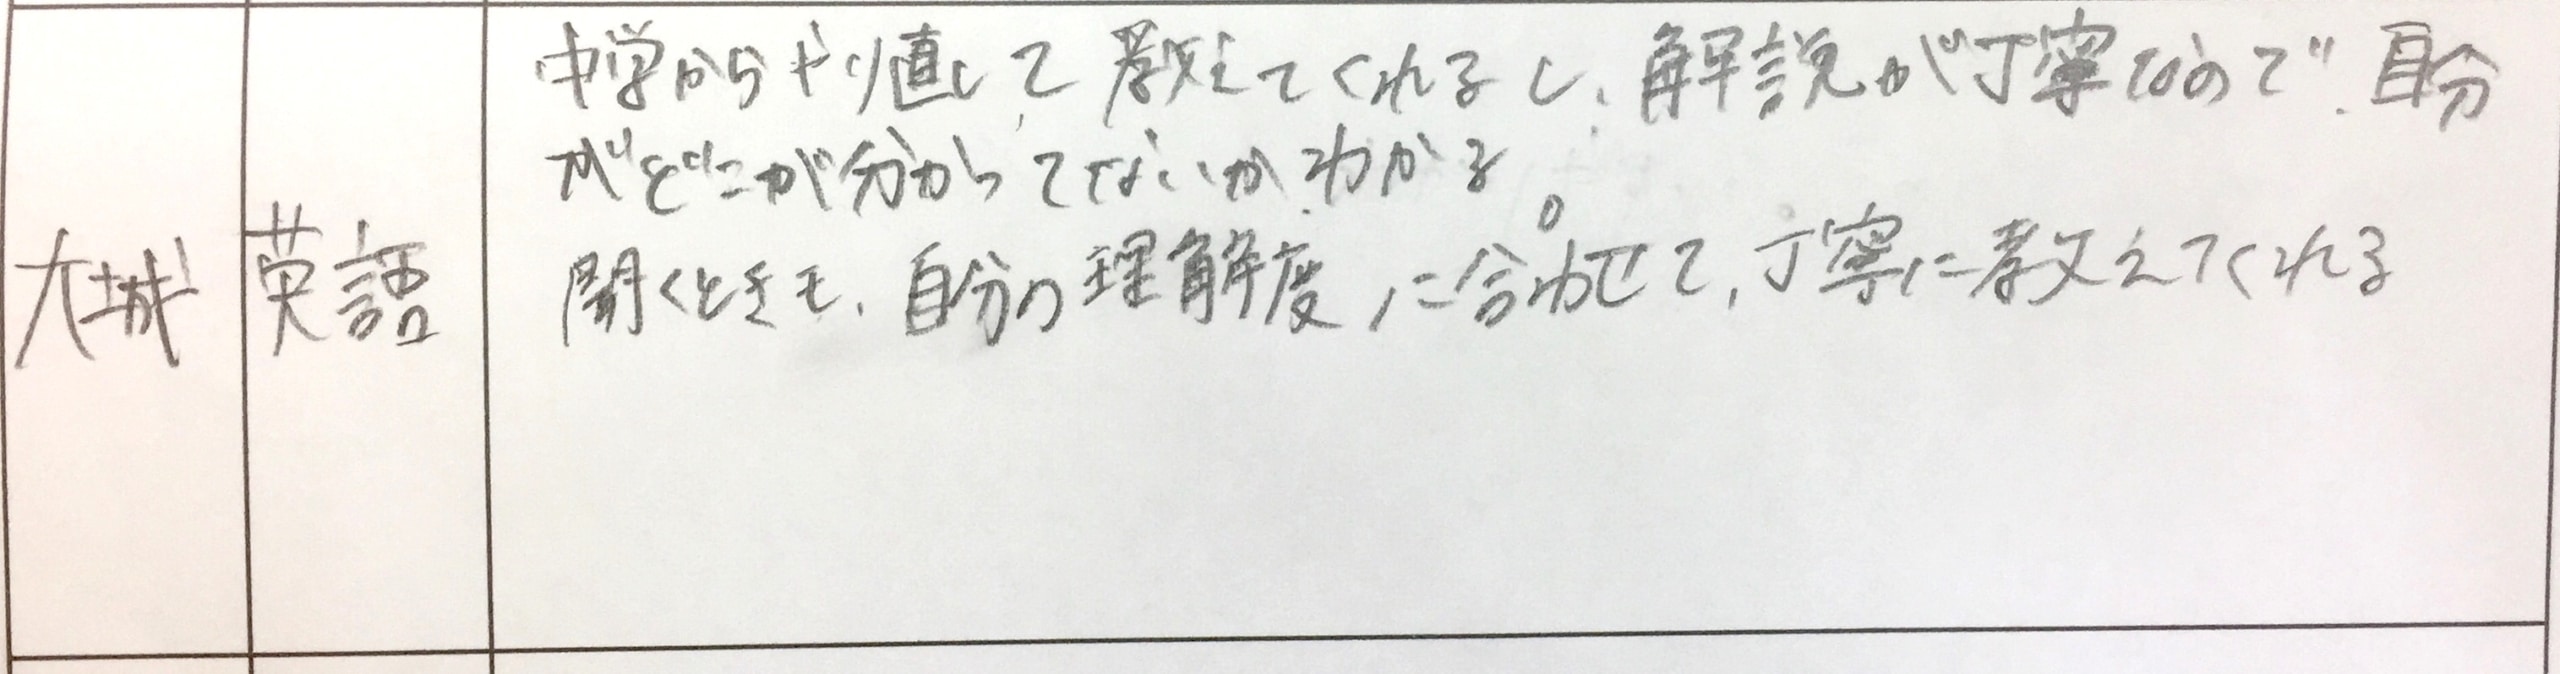 中学からやり直して、教えてくれるし、解説が丁寧なので、自分
がどこが分からてないか、わかる。
大城 英語 聞くときも、自分の理解度に合わせて、丁寧に教えてくれる